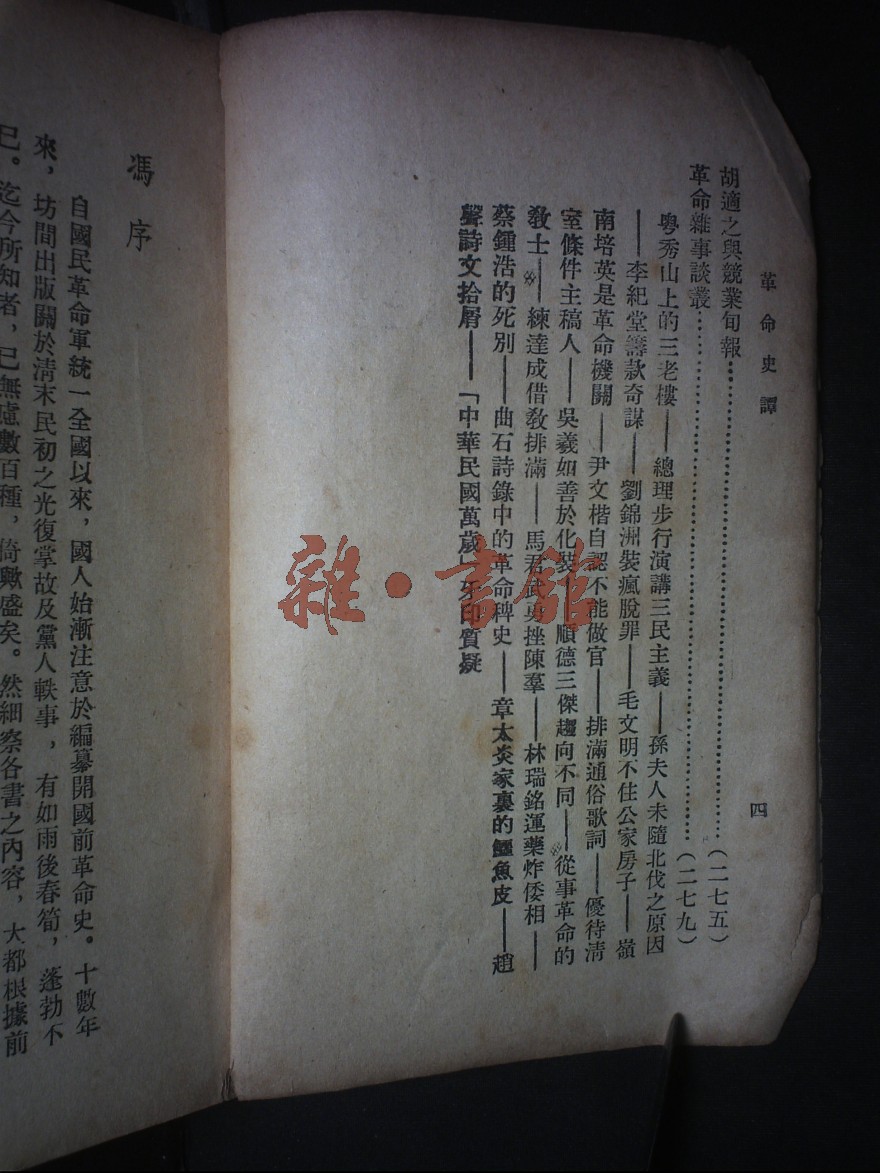 革命史譚
四
胡適之與競業旬報……(二七五)
革命雜事談叢……(二七九)
粤秀山上的三老樓——總理步行演講三民主義——孫夫人未隨北伐之原因
——李紀堂籌款奇謀——劉錦洲裝瘋脫罪——毛文明不住公家房子——嶺
南培英是革命機關——尹文楷自認不能做官——排滿通俗歌詞——優待清
室條件主稿人——吳羲如善於化裝——順德三傑趨向不同——從事革命的
敎士——練達成借敎排滿——馬君武勇挫陳羣——林瑞銘運藥炸倭相——
蔡鍾浩的死別——曲石詩錄中的革命稗史——章太炎家裏的鱷魚皮——趙
聲詩文拾屑——「中華民國萬歲」牙印質疑
馮序
自國民革命軍統一全國以來，國人始漸注意於編纂開國前革命史。十數年
來，坊間出版關於清末民初之光復掌故及黨人軼事，有如雨後春筍，蓬勃不
已。迄今所知者，已無慮數百種，猗歟盛矣。然細察各書之內容，大都根據前
雜·書館